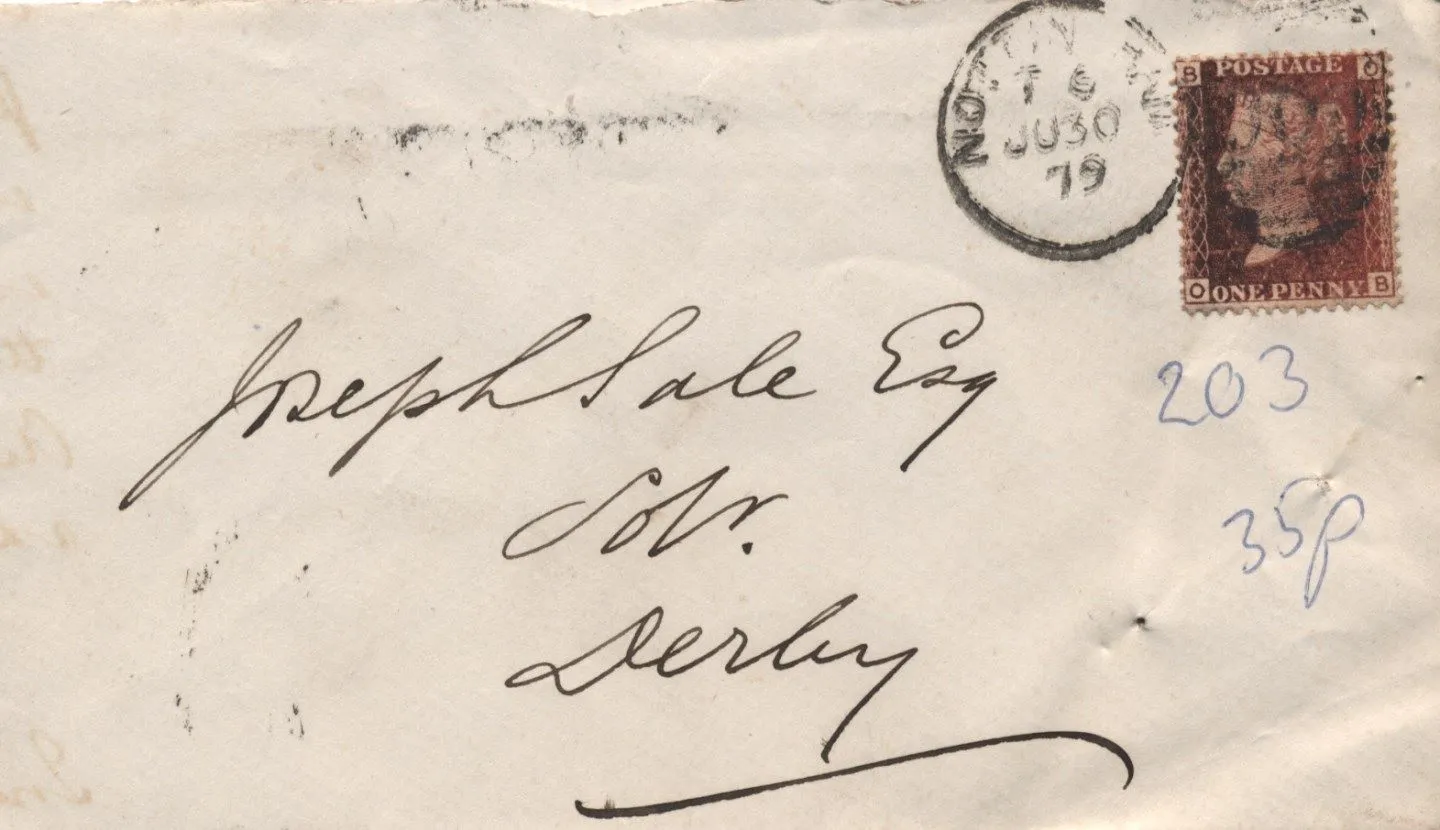 T 6
JU 30
79
B POSTAGE O
O ONE PENNY B
Joseph Sale Esq
203
Solr.
35p
Derby